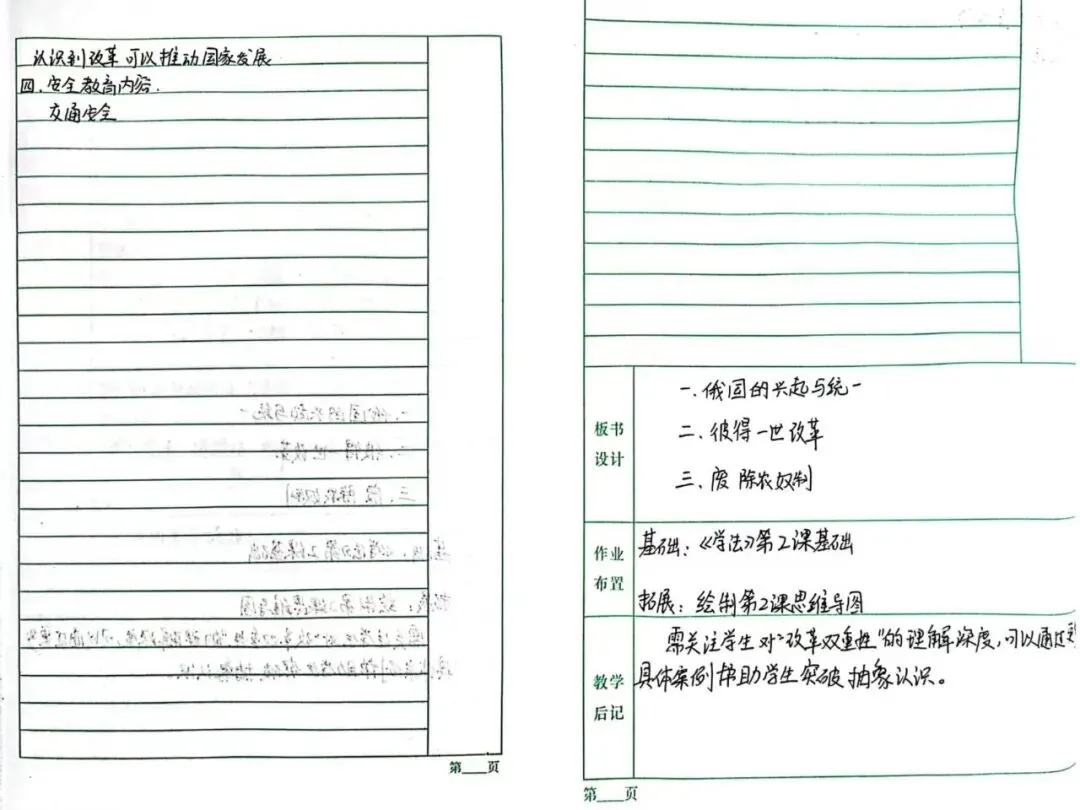 认识到改革可以推动国家发展
四.安全教育内容.
交通安全
第___页
板书设计
一.俄国的兴起与统一
二、彼得一世改革
三、废除农奴制
作业布置
基础:《学法》第2课基础
拓展:绘制第2课思维导图
教学后记
需关注学生对“改革双重性”的理解深度,可以通过
具体案例帮助学生突破抽象认识。
第___页